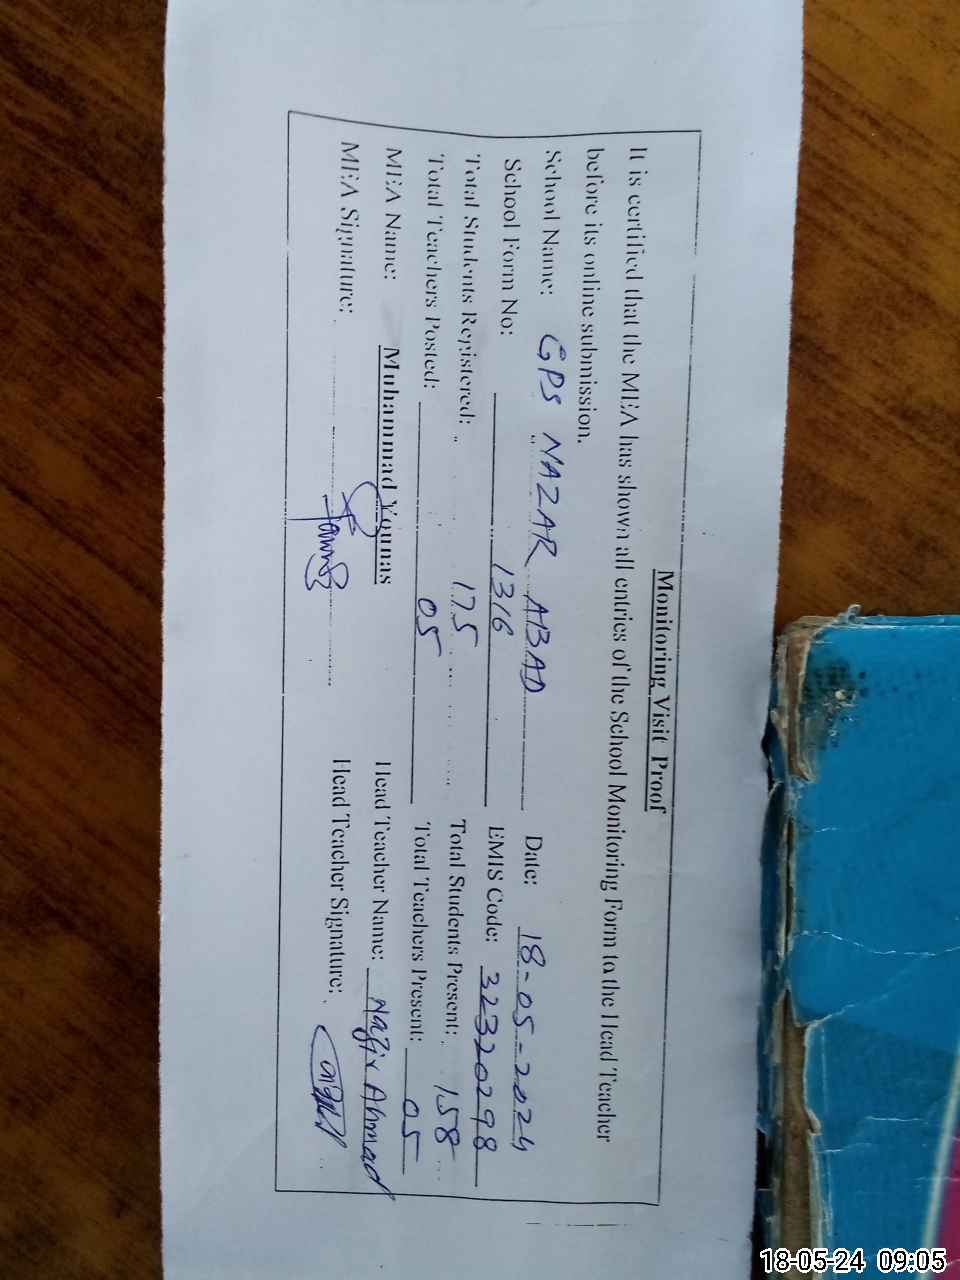 Monitoring Visit Proof
It is certified that the MEA has shown all entries of the School Monitoring Form to the Head Teacher
before its online submission.
School Name: GPS NAZAR ABAD Date: 18-05-2024
School Form No: 1316 EMIS Code: 32320298
Total Students Registered: 175 Total Students Present: 158
Total Teachers Posted: 05 Total Teachers Present: 05
MEA Name: Muhammad Younas Head Teacher Name: Nazir Ahmad
MEA Signature: Head Teacher Signature:
18-05-24 09:05